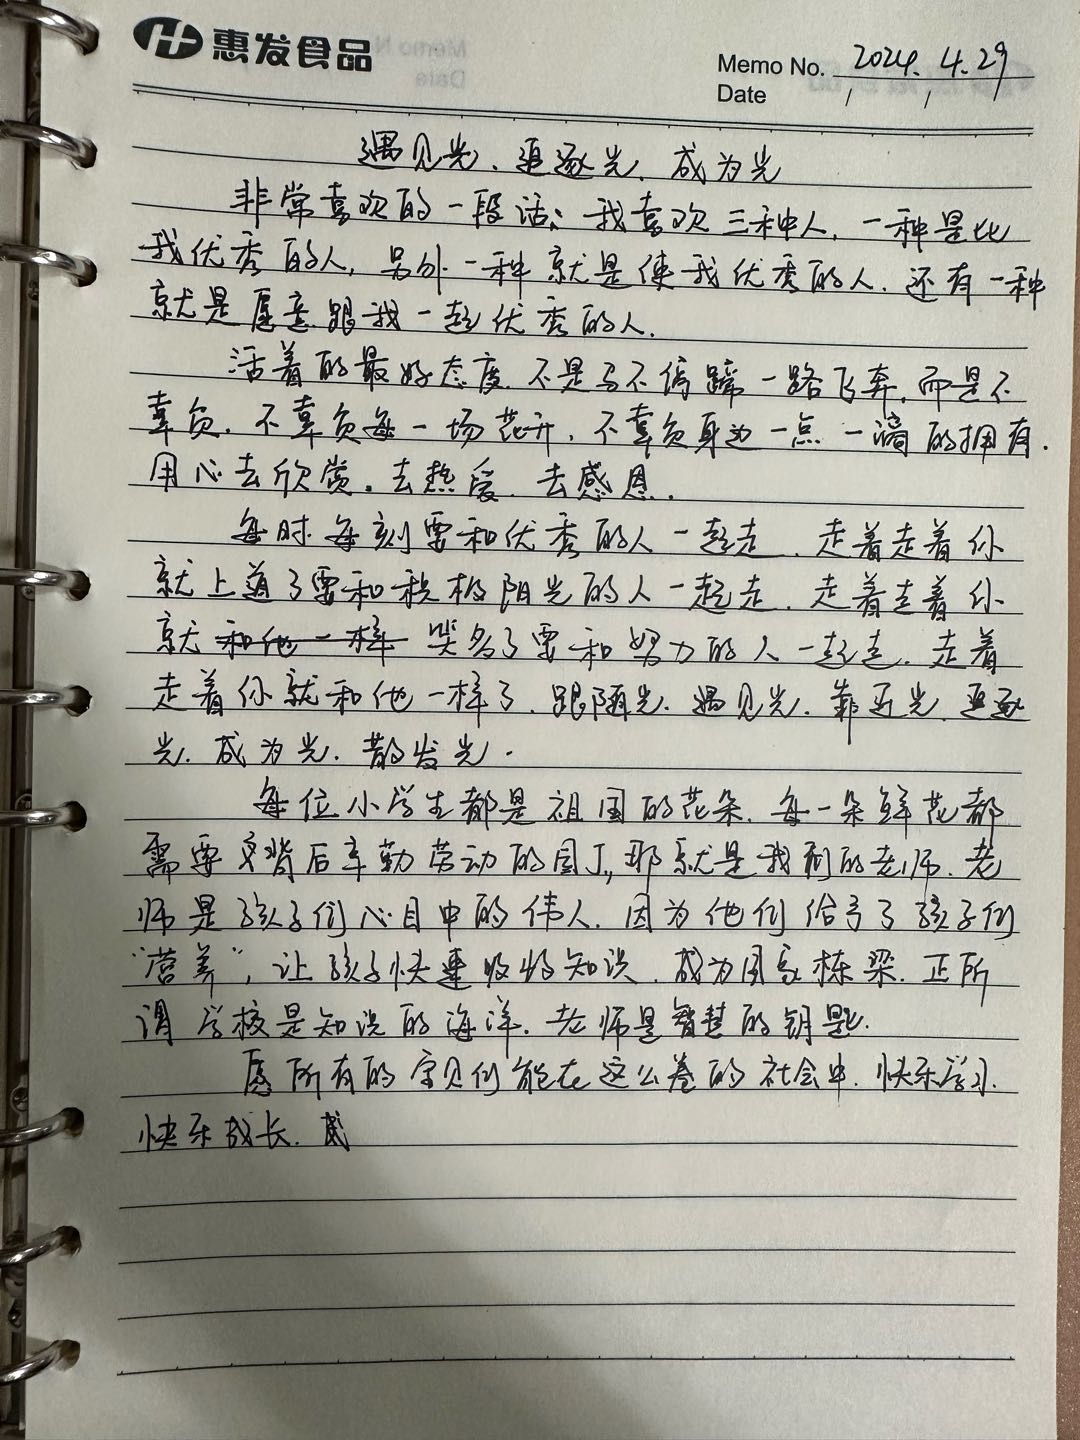 惠发食品
Memo No. 2024.4.29
Date / /
遇见光、追逐光、成为光
非常喜欢的一段话:我喜欢三种人,一种是比
我优秀的人,另外一种就是使我优秀的人.还有一种
就是愿意跟我一起优秀的人.
活着的最好态度.不是马不停蹄一路飞奔.而是不
辜负.不辜负每一场花开,不辜负身边一点一滴的拥有.
用心去欣赏.去热爱.去感恩.
每时每刻要和优秀的人一起走.走着走着你
就上道了要和积极阳光的人一起走.走着走着你
就和他一样 哭多了要和努力的人一起走.走着
走着你就和他一样了.跟随光.遇见光.靠近光.追逐
光.成为光.散发光.
每位小学生都是祖国的花朵.每一朵鲜花都
需要背后辛勤劳动的园丁,那就是我们的老师.老
师是孩子们心目中的伟人.因为他们给予了孩子们
“营养”,让孩子快速吸收知识.成为国家栋梁.正所
谓学校是知识的海洋.老师是智慧的钥匙.
愿所有的宝贝们能在这么卷的社会中.快乐学习.
快乐成长.